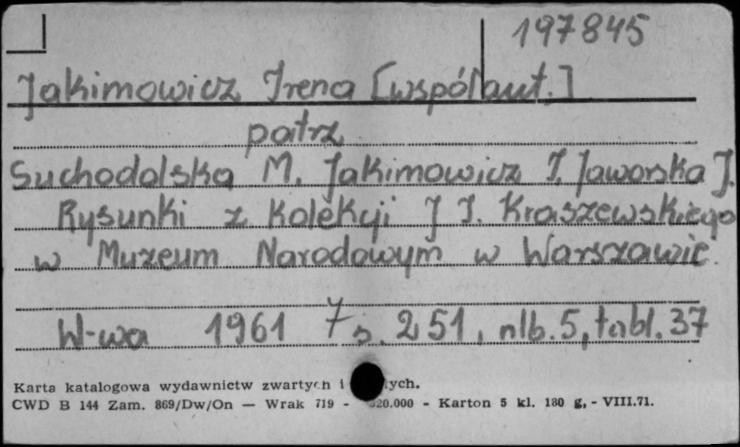 197845
Jakimowicz Irena [współaut.]
patrz
Suchodolska M. Jakimowicz I. Jaworska J.
Rysunki z Kolekcji J I. Kraszewskiego
w Muzeum Narodowym w Warszawie.
W-wa 1961 s. 251, nlb. 5, tabl. 37
Karta katalogowa wydawnictw zwartych i
CWD B 144 Zam. 869/Dw/On — Wrak 719 - 20.000 - Karton 5 kl. 180 g, - VIII.71.